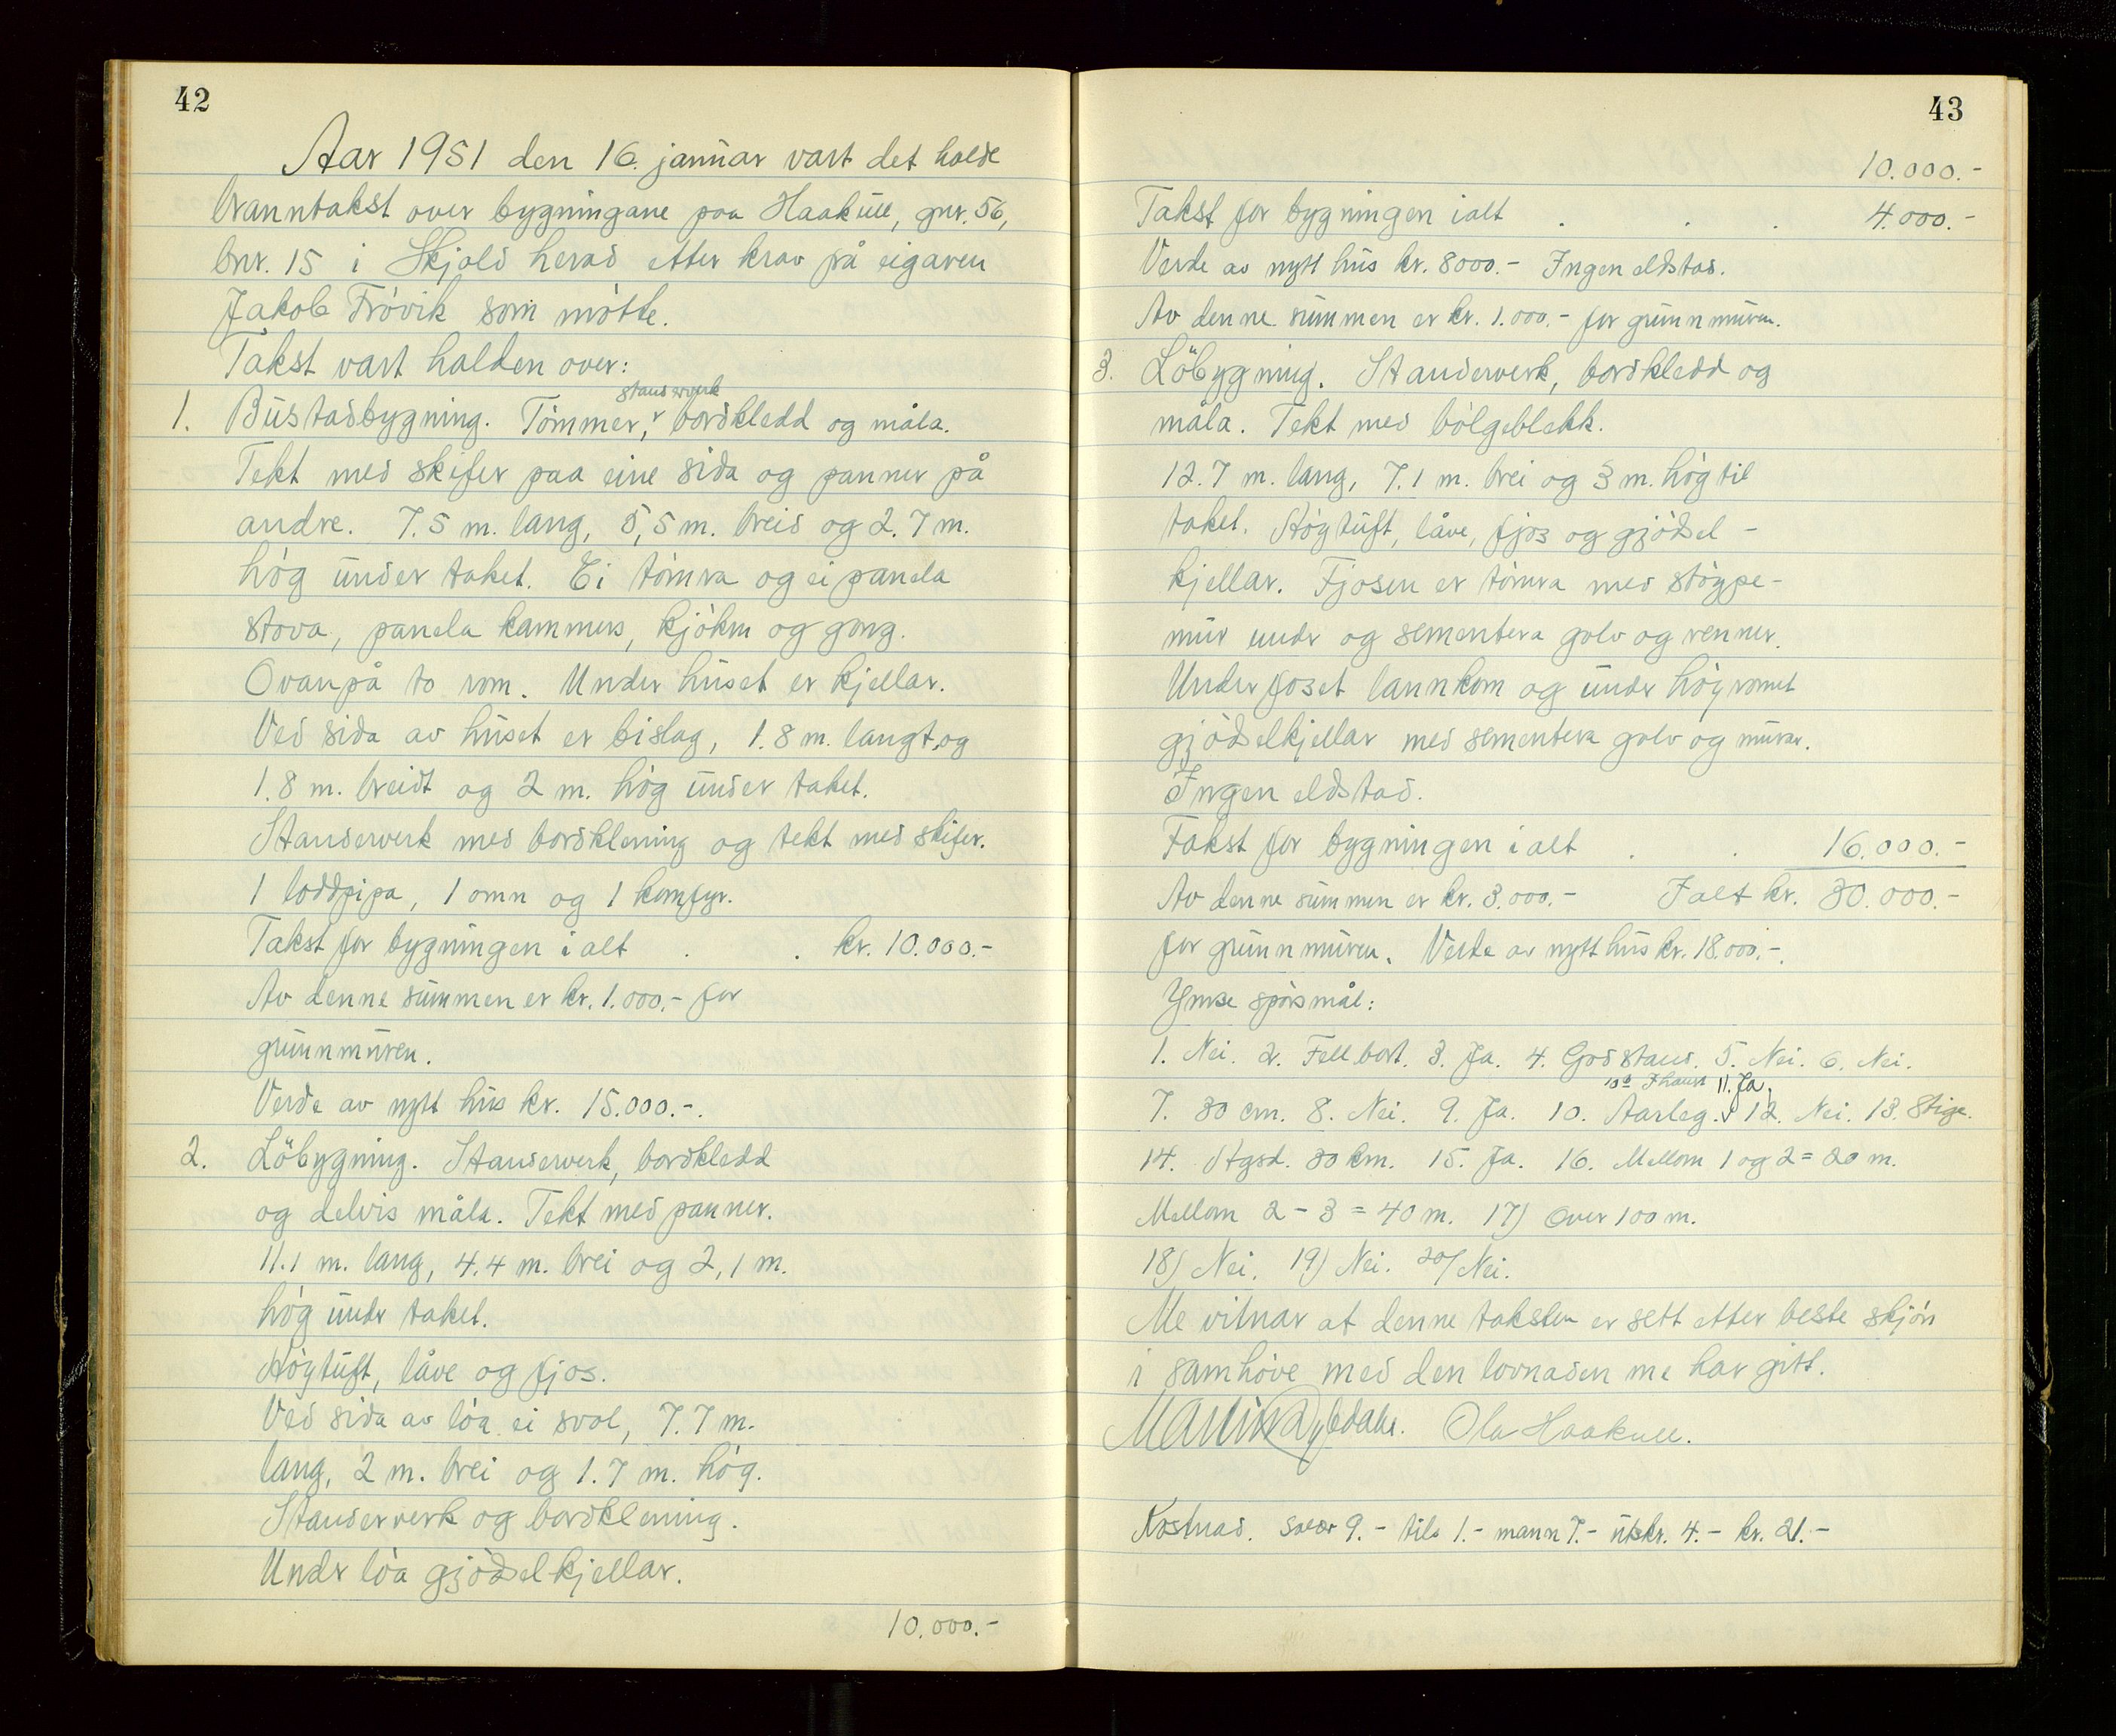 42
Aar 1951 den 16. januar vart det halde
branntakst over bygningane paa Haakull, gnr. 56,
bnr. 15 i Skjold herad etter krav på eigaren
Jakob Frövik som mötte.
Takst vart halden over:
standerverk
1. Bustadbygning. Tömmer, bordkledd og måla.
Tekt med skifer paa eine sida og panner på
andre. 7.5 m. lang, 5,5 m. breid og 2.7 m.
hög under taket. Ei tömra og ei panela
stova, panela kammers, kjökn og gong.
Ovanpå to rom. Under huset er kjellar.
Ved sida av huset er bislag, 1.8 m. langt, og
1.8 m. breidt og 2 m. hög under taket.
Standerverk med bordklening og tekt med skifer.
1 loddpipa, 1 omn og 1 komfyr.
Takst for bygningen i alt . . kr. 10.000.-
Av denne summen er kr. 1.000.- for
grunnmuren.
Verde av nytt hus kr. 15.000.-.
2. Löbygning. Standerverk, bordkledd
og delvis måla. Tekt med panner.
11.1 m. lang, 4.4 m. brei og 2,1 m.
hög undr taket.
Höytuft, låve og fjos.
Ved sida av löa ei sval, 7.7 m.
lang, 2 m. brei og 1.7 m. hög.
Standerverk og bordklening.
Undr löa gjödselkjellar.
10.000.-
43
10.000.-
Takst for bygningen ialt . . . 4.000.-
Verde av nytt hus kr. 8000.- Ingen eldstad.
Av denne summen er kr. 1.000.- for grunnmuren.
3. Löbygning. Standerverk, bordkledd og
måla. Tekt med bölgeblekk.
12.7 m. lang, 7.1 m. brei og 3 m. hög til
taket. Höytuft, låve, fjos og gjödsel-
kjellar. Fjosen er tömra med stöype-
mur undr og sementera golv og renner.
Under foset lannkom og undr höyromet
gjödselkjellar med sementera golv og murar.
Ingen eldstad.
Takst for bygningen i alt . . 16.000.-
Av denne summen er kr. 3.000.- Ialt kr. 30.000.-
for grunnmuren. Verde av nytt hus kr. 18.000.-.
Ymse spörsmål:
1. Nei. 2. Fell bort. 3. Ja. 4. God stand. 5. Nei. 6. Nei.
10b I haust 11. Ja.
7. 30 cm. 8. Nei. 9. Ja. 10. Aarleg. 12. Nei. 13. Stige.
14. Htgsd. 30 km. 15. Ja. 16. Mellom 1 og 2 = 20 m.
Mellom 2 - 3 = 40 m. 17) Over 100 m.
18) Nei. 19) Nei. 20) Nei.
Me vitnar at denne taksten er sett etter beste skjön
i samhöve med den lovnaden me har gitt.
Martin Dybdahl. Ola Haakull.
Kostnad. 9.- tils 1.- mann 7.- utskr. 4.- kr. 21.-